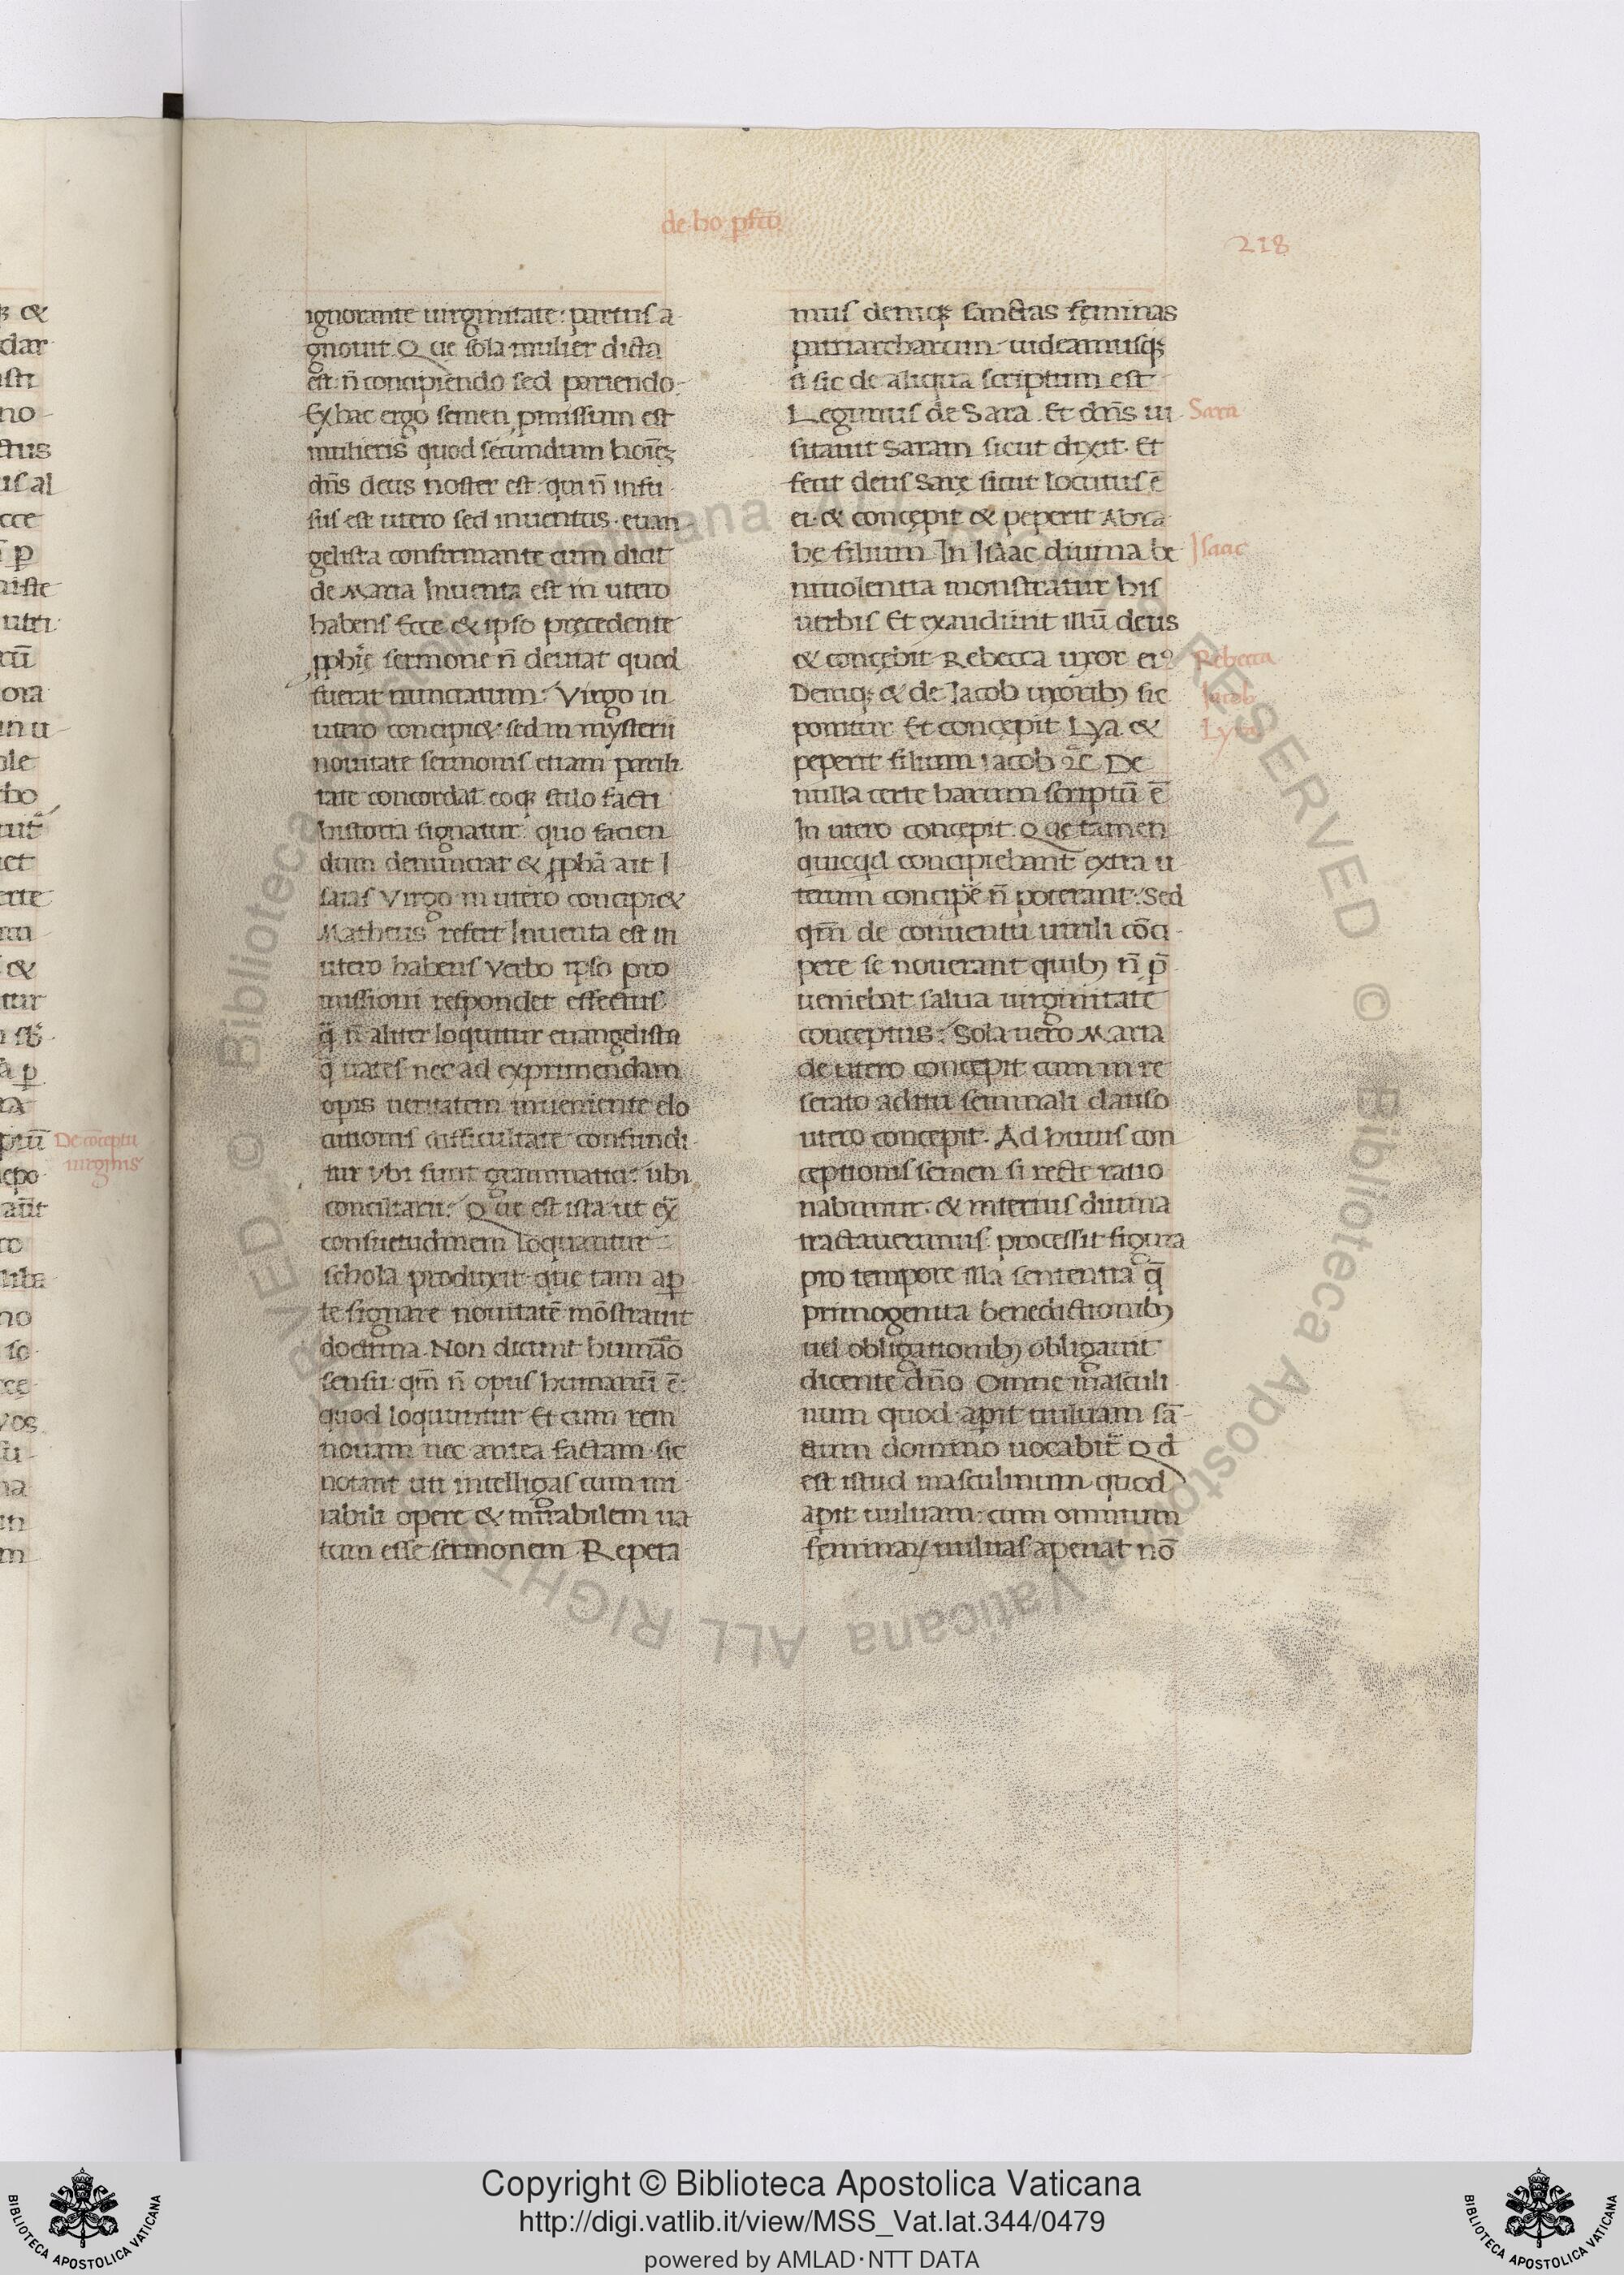 de ho ꝑfc̄o
218
ignorante uirginitate: partus a-
gnouit. Que sola mulier dicta
est n̄ concipiendo sed pariendo.
Ex hac ergo semen ꝓmissum est
mulieris quod secundum hoīez
dn̄s deus noster est. qui n̄ infu-
sus est utero sed inuentus. euan-
gelista confirmante cum dicit
de Maria Inuenta est in utero
habens Ecce & ipso pręcedente
ꝓphīę sermone n̄ deuiat quod
fuerat nunciatum. Virgo in
utero concipi&. sed in mysterii
nouitate sermonis etiam parili-
tate concordat. eoqꝫ stilo facti
historia signatur. quo facien
dum denunciat & ꝓphā ait I
saias Virgo in utero concipi&
Matheus refert Inuenta est in
utero habens Verbo ipso pro
missioni respondet effectus
q̄ n̄ aliter loquitur euangelista
q̄ uates nec ad exprimendam
opis ueritatem inueniente elo
cutionis difficultate confundi-
tur Vbi sunt grammatici: ubi
conciliarii: Que est ista ut ex̄
consuetudinem loquantur
schola produxit. que tam aꝑ
te signare nouitatē mōstrauit
doctrina. Non dicunt humāo
sensu. qm̄ n̄ opus humanū ē:
quod loquuntur Et cum rem
nouam nec antea factam. sic
notant uti intelligas cum mi-
rabili opere & mirabilem na
tum esse sermonem Repeta
mus deniqꝫ sanctas feminas
patriarcharum. uideamusqꝫ
si sic de aliqua scriptum est
Legimus de Sara. Et dn̄s ui-
sitauit Saram sicut dixit. Et
fecit deus Sarę sicut locutus ē
ei. & concępit & peperit Abra
hę filium In Isaac diuina be
niuolentia monstratur his
uerbis Et exaudiuit illū deus
& concębit Rebecca uxor eiꝰ
Deniqꝫ & de Iacob uxoribꝫ sic
ponitur Et concępit Lya &
peperit filium iacob ⁊c̄ De
nulla certe harum scriptū ē
In utero concępit. Que tamen
quicqd concipiebant extra u
terum concipe n̄ poterant. Sed
qm̄ de conuentu uirili cōci-
pere se nouerant quibꝫ n̄ p̄
ueniebat salua uirginitate
conceptus: Sola uero Maria
de utero concępit cum in re
serato aditu seminali clauso
utero concępit. Ad huius con
ceptionis semen si recte ratio
nabimur. & interius diuina
tractauerimus. processit figura
pro tempore illa sententia q̄
primogenita benedictionibꝫ
uel obligationibꝫ obligauit
dicente dn̄o Omne masculi-
num quod apit uuluam sā-
ctum domino uocabit̄ Qd
est istud masculinum quod
apit uuluam: cum omnium
feminaꝝ uuluas aperiat nō
Sara
Isaac
Rebecca
Iacob
Lya
De cōceptu
uirginis
Copyright © Biblioteca Apostolica Vaticana
http://digi.vatlib.it/view/MSS_Vat.lat.344/0479
powered by AMLAD·NTT DATA
BIBLIOTECA APOSTOLICA VATICANA
BIBLIOTECA APOSTOLICA VATICANA
© Biblioteca Apostolica Vaticana ALL RIGHTS RESERVED